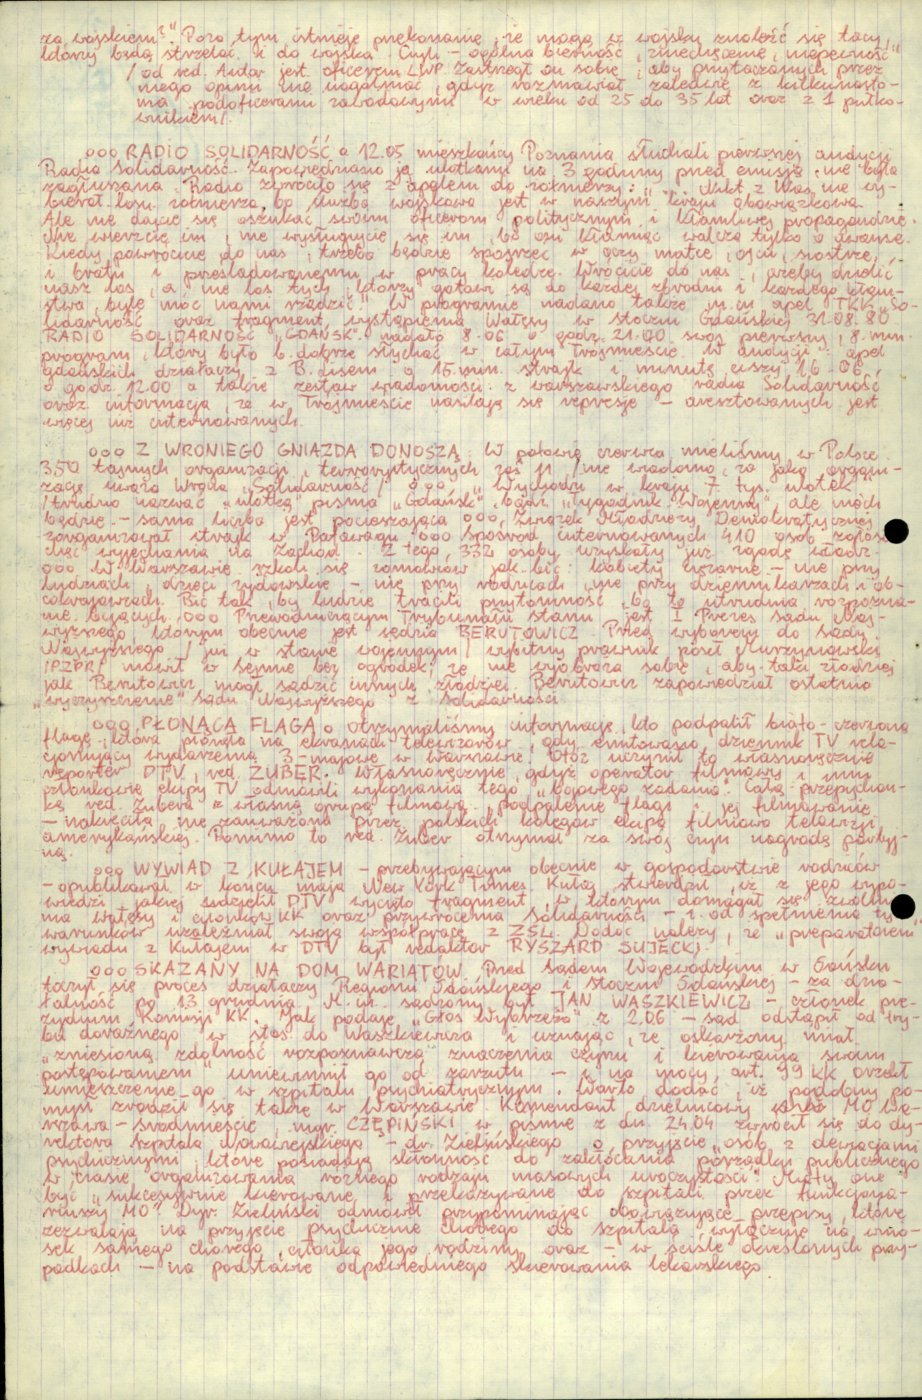 za wojskiem?". Poza tym istnieje przekonanie, że mogą w wojsku znaleźć się tacy,
którzy będą strzelać i do wojska. Czyli - ogólna bierność, zniechęcenie, niepewność"
/od red. Autor jest oficerem LWP. Zastrzegł on sobie, aby przytaczanych przez
niego opinii nie uogólniać, gdyż rozmawiał zaledwie z kilkunasto-
ma podoficerami zawodowymi w wieku od 25 do 35 lat oraz z 1 pułko-
wnikiem/.
ooo RADIO SOLIDARNOŚĆ o 12.05 mieszkańcy Poznania słuchali pierwszej audycji
Radia Solidarność. Zapowiedziano ją ulotkami na 3 godziny przed emisją - nie była
zagłuszana. Radio zwróciło się z apelem do żołnierzy: "... Nikt z Was nie wy-
bierał losu żołnierza, bo służba wojskowa jest w naszym kraju obowiązkowa.
Ale nie dajcie się oszukać swoim oficerom politycznym i kłamliwej propagandzie.
Nie wierzcie im, nie wysługujcie się im, bo oni kłamiąc walczą tylko o awanse.
Kiedy powrócicie do nas, trzeba będzie spojrzeć w oczy matce, ojcu, siostrze,
i bratu i prześladowanemu w pracy koledze. Wrócicie do nas, żeby dzielić
nasz los, a nie los tych, którzy gotowi są do każdej zbrodni i każdego kłam-
stwa, byle móc nami rządzić". W programie nadano także m.in. apel TKK "So-
lidarność" oraz fragment wystąpienia Wałęsy w stoczni Gdańskiej 31.08.80.
RADIO SOLIDARNOŚĆ "GDAŃSK" nadało 8.06 o godz. 21.00 swój pierwszy, 8 min.
program, który było b. dobrze słychać w całym Trójmieście. W audycji: apel
gdańskich działaczy z B. Lisem o 15 min. strajk i minutę ciszy 16.06.
o godz. 12.00 a także zestaw wiadomości z warszawskiego radia Solidarność
oraz informacja, że w Trójmieście nasilają się represje - aresztowanych jest
więcej niż internowanych.
ooo Z WRONIEGO GNIAZDA DONOSZĄ: W połowie czerwca mieliśmy w Polsce
350 tajnych organizacji, terrorystycznych zaś 11 /nie wiadomo, za jaką organi-
zację uważa Wrona "Solidarność"/ ooo "Wychodzi w kraju 7 tys. ulotek"
/trudno nazwać "ulotką" pisma "Gdańsk" bądź "Tygodnik Wojenny", ale niech
będzie - sama liczba jest pocieszająca ooo, Związek Młodzieży Demokratycznej
zorganizował strajk w Pafawagu ooo Spośród internowanych 410 osób zgłosi
chęć wyjechania na Zachód. Z tego 332 osoby uzyskały już zgodę władz.
ooo W Warszawie szkoli się zomowców jak bić: kobiety ciężarne - nie przy
ludziach, dzieci żydowskie - nie przy rodzicach, nie przy dziennikarzach i ob-
cokrajowcach. Bić tak, by ludzie tracili przytomność, bo to utrudnia rozpozna-
nie bijących. ooo Przewodniczącym Trybunału Stanu jest I Prezes Sądu Naj-
wyższego, którym obecnie jest sędzia BERUTOWICZ. Przed wyborem do Sądu
Najwyższego /już w stanie wojennym/ wybitny prawnik poseł Murzynowski
/PZPR/ mówił w Sejmie bez ogródek, że nie wyobraża sobie, aby taki złodziej
jak Berutowicz mógł sądzić innych złodziei. Berutowicz zapowiedział ostatnio
"wyczyszczenie" Sądu Najwyższego z Solidarności.
ooo PŁONĄCA FLAGA o Otrzymaliśmy informację, kto podpalił biało-czerwoną
flagę, która płonęła na ekranach telewizorów, gdy emitowano dziennik TV rela-
cjonujący wydarzenia 3-majowe w Warszawie. Otóż uczynił to własnoręcznie
reporter DTV, red. ZUBER. Własnoręcznie, gdyż operator filmowy i inni
członkowie ekipy TV odmówili wykonania tego "bojowego zadania". Całą przepychan-
kę red. Zubera z własną grupą filmową, podpalenie flagi i jej filmowanie
- nakręciła nie zauważona przez polskich kolegów ekipa filmowa telewizji
amerykańskiej. Pomimo to red. Zuber otrzymał za swój czyn nagrodę partyj-
ną.
ooo WYWIAD Z KUŁAJEM - przebywającym obecnie w gospodarstwie rodziców
- opublikował w końcu maja New York Times. Kułaj stwierdził, iż z jego wypo-
wiedzi jakiej udzielił DTV wycięto fragment, w którym domagał się zwolnie-
nia Wałęsy i członków KK oraz przywrócenia Solidarności - i od spełnienia tych
warunków uzależniał swoją współpracę z ZSL. Dodać należy, że "preparatorem"
wywiadu z Kułajem w DTV był redaktor RYSZARD SUJECKI.
ooo SKAZANY NA DOM WARIATÓW. Przed Sądem Wojewódzkim w Gdańsku
toczył się proces działaczy Regionu Gdańskiego i Stoczni Gdańskiej - za dzia-
łalność po 13 grudnia. M.in. sądzony był JAN WASZKIEWICZ - członek pre-
zydium Komisji KK. Jak podaje "Głos Wybrzeża" z 2.06 - sąd odstąpił od try-
bu doraźnego w stos. do Waszkiewicza i uznając, że oskarżony miał
"zniesioną zdolność rozpoznawczą" znaczenia czynu i kierowania swoim
postępowaniem" uniewinnił go od zarzutu - i na mocy art. 99 KK orzekł
umieszczenie go w szpitalu psychiatrycznym. Warto dodać, iż podobny po-
mysł zrodził się także w Warszawie. Komendant dzielnicowy MO Wa-
rszawa-Śródmieście, mgr. CZĘPIŃSKI w piśmie z dn. 24.04 zwrócił się do dy-
rektora szpitala Nowowiejskiego - dr. Zielińskiego o przyjście "osób z dewiacjami
psychicznymi, które posiadają skłonność do zakłócania porządku publicznego
w czasie organizowania różnego rodzaju masowych uroczystości". Miały one
być "sukcesywnie kierowane i przekazywane do szpitali przez funkcjona-
riuszy MO". Dyr. Zieliński odmówił przypominając obowiązujące przepisy, które
zezwalają na przyjęcie psychicznie chorego do szpitala wyłącznie na wnio-
sek samego chorego, członka jego rodziny oraz - w ściśle określonych przy-
padkach - na podstawie odpowiedniego skierowania lekarskiego.